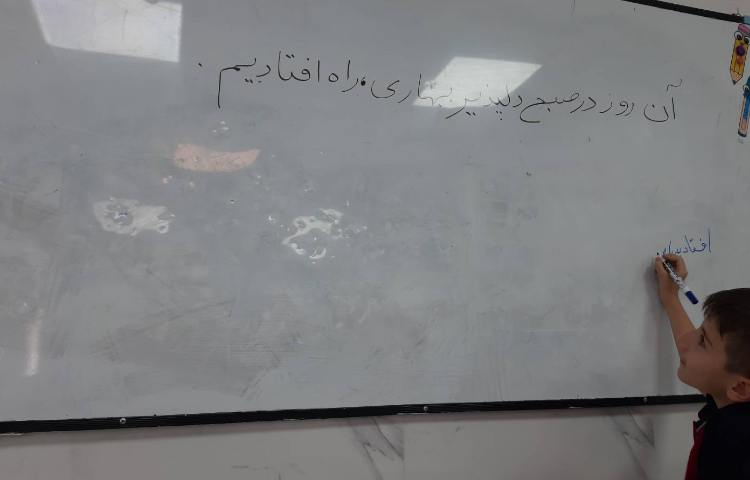 آن روز در صبح دلپذیر بهاری، راه افتادیم .
افتادیم